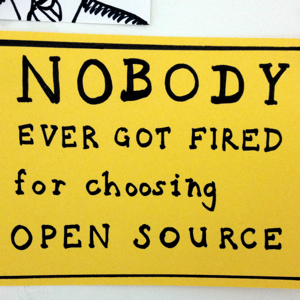 NOBODY
EVER GOT FIRED
for choosing
OPEN SOURCE